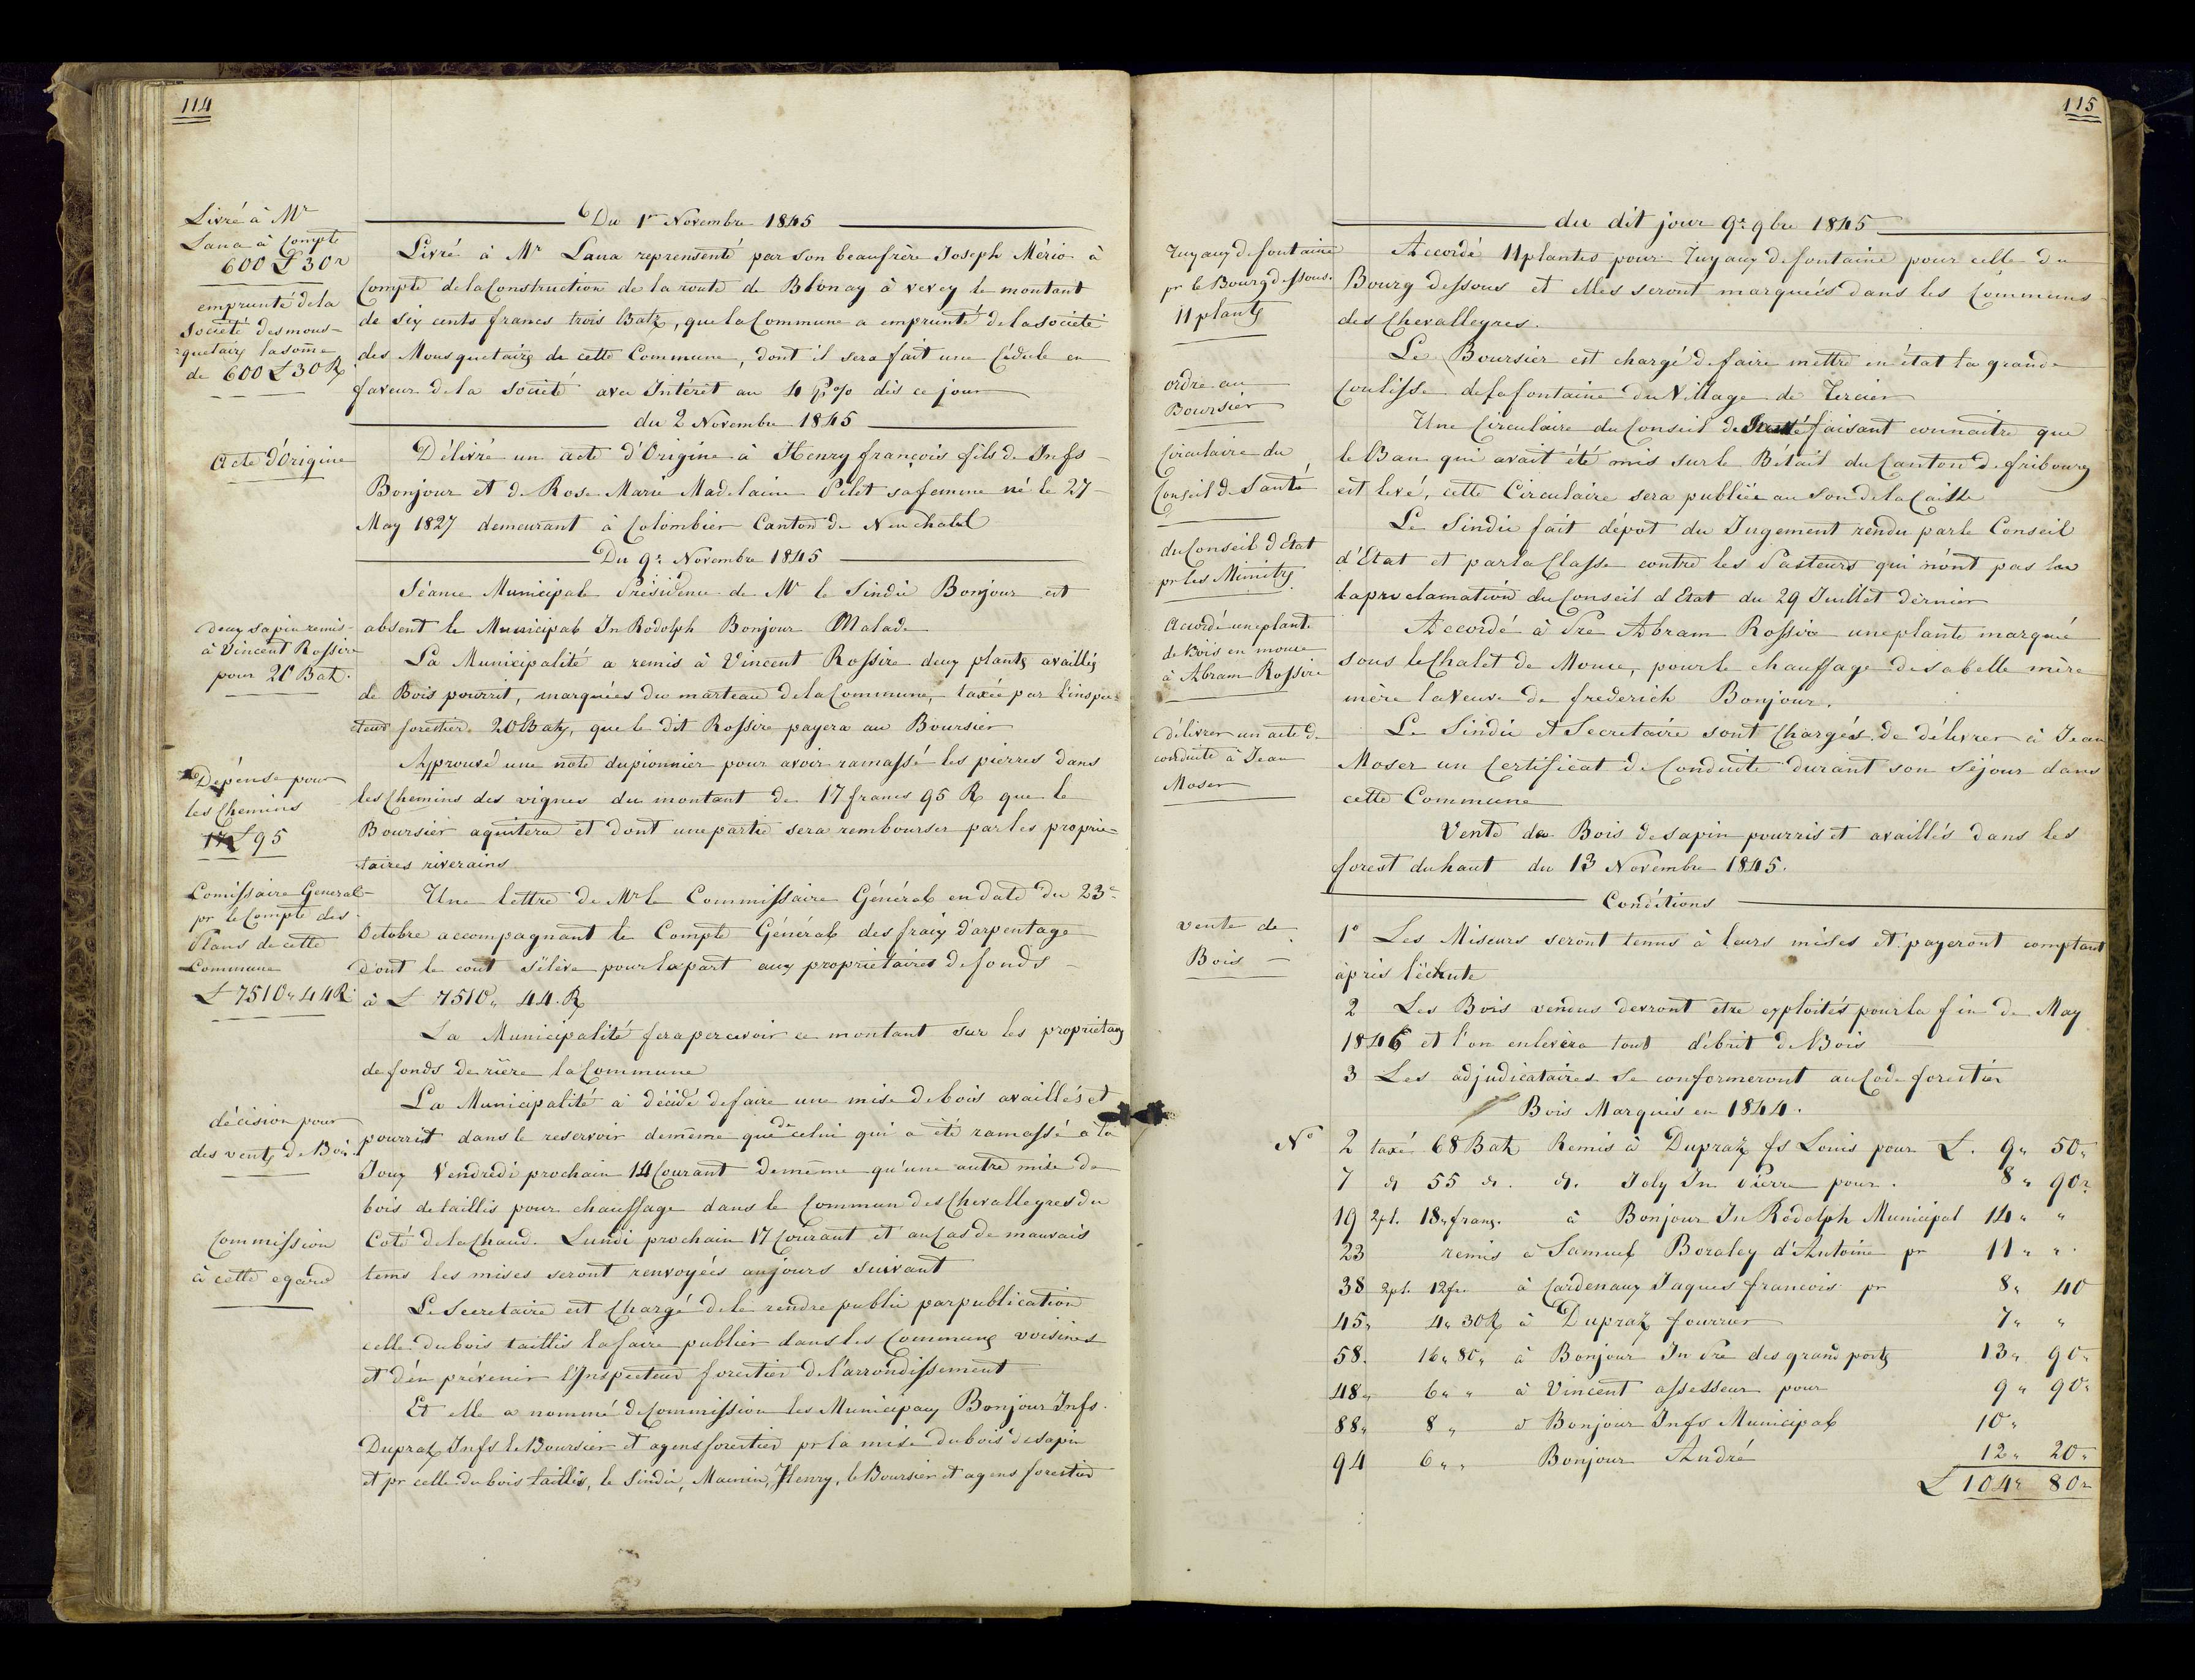 114
Livré à Mr
Lana à Compte
600 £ 30 r
emprunté de la
Société des mous-
quetairs la some
de 600 £ 30 R
Du 1r Novembre 1845
Livré à Mr Lana reprensenté par son beaufrère Joseph Mério à
Compte de la Construction de la route de Blonay à vevey le montant
de six cents francs trois Batz, que la Commune a emprunté de la societé
des Mousquetairs de cette Commune, dont il sera fait une Cédule en
faveur de la Societé avec Intérêt au 4 p% dès ce jour
du 2 Novembre 1845
Acte d'Origine
Délivré un acte d'Origine à Henry françois fils de Jnfs
Bonjour et de Rose Marie Madelaine Pilet sa femme né le 27
May 1827 demeurant à Colombier Canton de Neuchatel
Du 9e Novembre 1845
Séance Municipale Présidence de Mr le Sindic Bonjour est
absent le Municipal Jn Rodolph Bonjour Malade
deux sapin remis
à Vincent Rossire
pour 20 Batz.
La Municipalité a remis à Vincent Rossire deux plants availlés
de Bois pourrit, marquées du marteau de la Commune, taxée par l'inspec-
teur forestier 20 Batz, que le dit Rossire payera au Boursier
Dépense pour
les Chemins
17 £ 95
Approuvé une note du pionnier pour avoir ramassé les pierres dans
les Chemins des vignes du montant de 17 francs 95 R que le
Boursier aquitera et dont une partie sera rembourser par les proprie-
taires riverains
Comissaire General
pr le Compte des
Plans de cette
Commune
£ 7510 " 44 R
Une lettre de Mr le Commissaire Général en date du 23e
Octobre accompagnant le Compte Général des fraix d'arpentage
dont le cout s'élève pour la part aux proprietaires de fonds
à £ 7510 " 44. R
La Municipalité fera percevoir ce montant sur les proprietaires
de fonds derière la Commune
décision pour
des vents de Bois
La Municipalité a décidé de faire une mise de bois availlés et
pourrit dans le reservoir de même que de celui qui a été ramassé à la
Joux Vendredi prochain 14 Courant de même qu'une autre mise de
bois de taillis pour chauffage dans le Commun des Chevalleyres du
Coté de la Chaud. Lundi prochain 17 Courant et au Cas de mauvais
tems les mises seront renvoyées au jours suivant
Commission
à cette egard
Le Secretaire est Chargé de le rendre public par publication
celle du bois taillis la faire publier dans les Communes voisines
et d'en prévenir l'Inspecteur forestier de l'arrondissement
Et elle a nommé de Commission les Municipaux Bonjour Jnfs.
Dupraz Jnfs le Boursier et agens forestier pr la mise du bois de sapin
et pr celle du bois taillis, le Sindic, Mamin, Henry, le Boursier et agens forestier
115
du dit jour 9e 9bre 1845
Tuyaux de fontaine
pr le Bourg dessous
11 plants
Accordé 11 plantes pour Tuyaux de fontaine pour celle du
Bourg dessous et elles seront marquées dans les Communs
des Chevalleyres.
ordre au
Boursier
Le Boursier est chargé de faire mettre en état la grande
Coulisse de la fontaine du Village de Tercier
Circulaire du
Conseil de Santé
Une Circulaire du Conseil de Santé faisant connaitre que
le Ban qui avait été mis sur le Bétail du Canton de fribourg
est levé, cette Circulaire sera publiée au Son de la Caisse
du Conseil d'Etat
pr les Ministrs
Le Sindic fait dépot du Jugement rendu par le Conseil
d'Etat et par la Classe contre les Pasteurs qui n'ont pas lu
la proclamation du Conseil d'Etat du 29 Juillet dernier
Accordé une plante
de Bois en mouce
à Abram Rossire
Accordé à Pre Abram Rossire une plante marqué
sous le Chalet de Mouce, pour le chauffage de sa belle mère
mère la Veuve de frederich Bonjour.
délivrer un acte de
conduite à Jean
Moser
Le Sindic et Secretaire sont Chargés de délivrer à Jean
Moser un Certificat de Conduite durant son Séjour dans
cette Commune
Vente de Bois de sapin pourris et availlés dans les
forest du haut du 13 Novembre 1845.
Conditions
vente de
Bois
1° Les Miseurs seront tenus à leurs mises et payeront comptant
après l'échute
2 Les Bois vendus devront être exploités pour la fin de May
1846 et l'on enlevera tout débrit de Bois
3 Les adjudicataires se conformeront au Code forestier
Bois Marqués en 1844.
No 2 taxé 68 Batz Remis à Dupraz fs Louis pour £. 9 " 50 "
7 d 55 d. d. Joly Jn Pierre pour 8 " 90 "
19 2pl. 18 " franç. à Bonjour Jn Rodolph Municipal 14 " "
23 remis à Samuel Boraley d'Antoine pr 11 " "
38 2pl. 12 fr. à Cardenaux Jaques francois pr 8 " 40
45 " 4 " 30 R à Dupraz fourrier 7 " "
58. 16 " 80 " à Bonjour Jn Pre des grand ports 13 " 90 "
48 " 6 " " à Vincent assesseur pour 9 " 90 "
88 " 8 " à Bonjour Jnfs Municipal 10 "
94 6 " " Bonjour André 12 " 20 "
£ 104 " 80 "